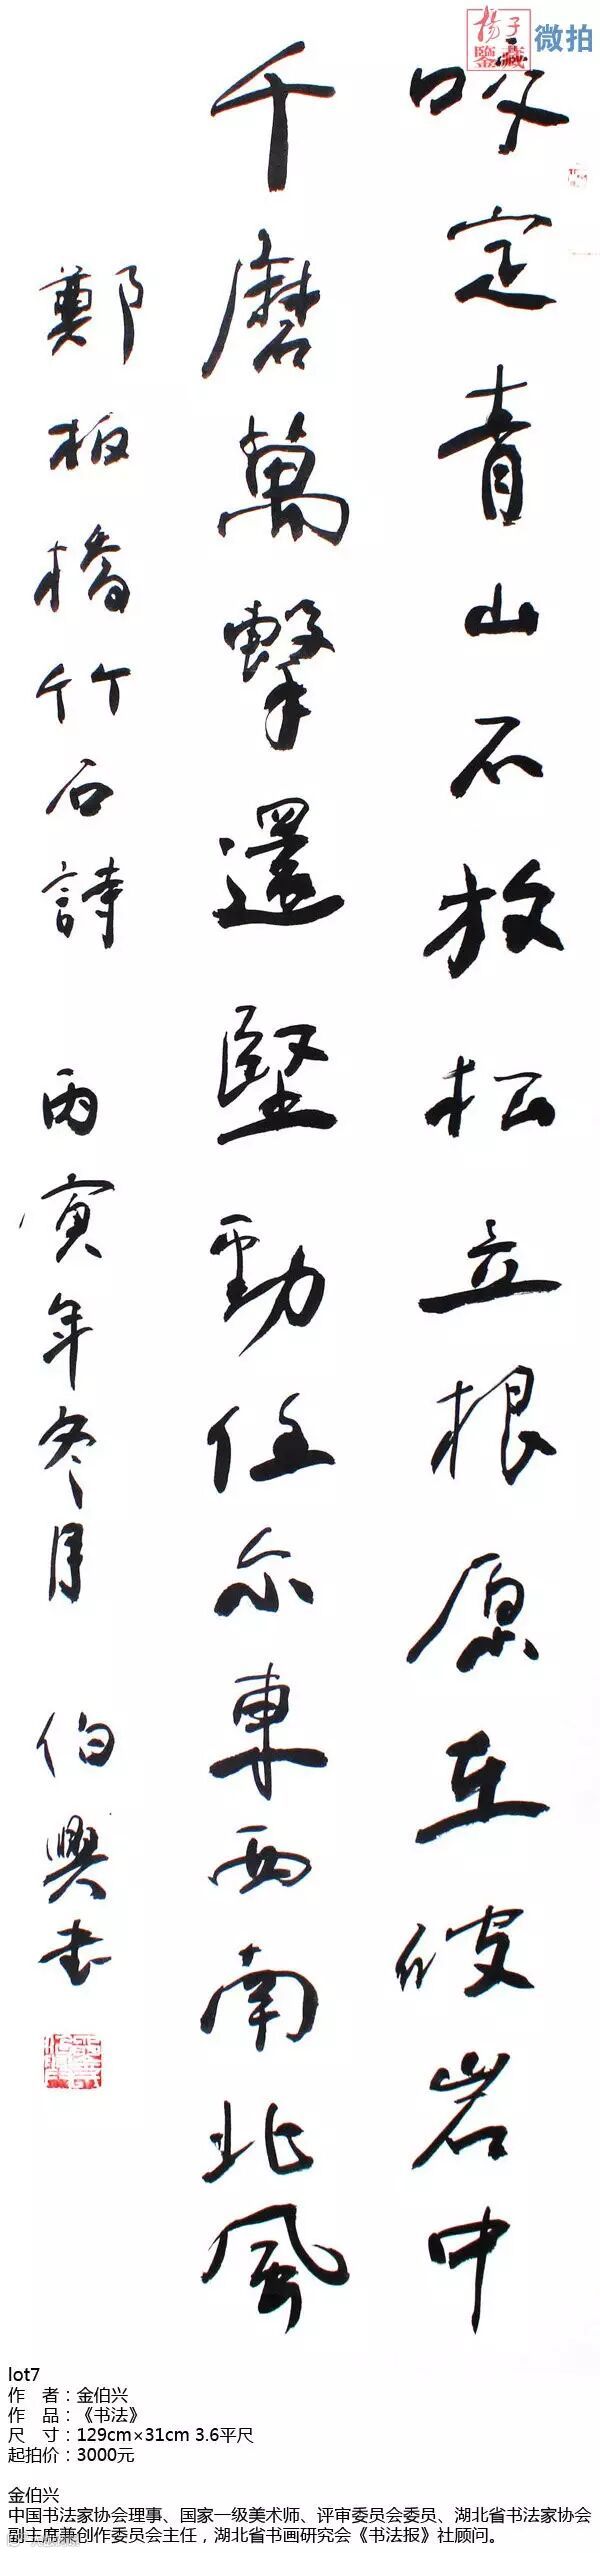 揚子
鑒藏
微拍
咬定青山不放松立根原在破岩中
千磨萬擊還堅勁任尔東西南北風
鄭板橋竹石詩 丙寅年冬月 伯興書
lot7
作 者：金伯兴
作 品：《书法》
尺 寸：129cm×31cm 3.6平尺
起拍价：3000元
金伯兴
中国书法家协会理事、国家一级美术师、评审委员会委员、湖北省书法家协会
副主席兼创作委员会主任，湖北省书画研究会《书法报》社顾问。